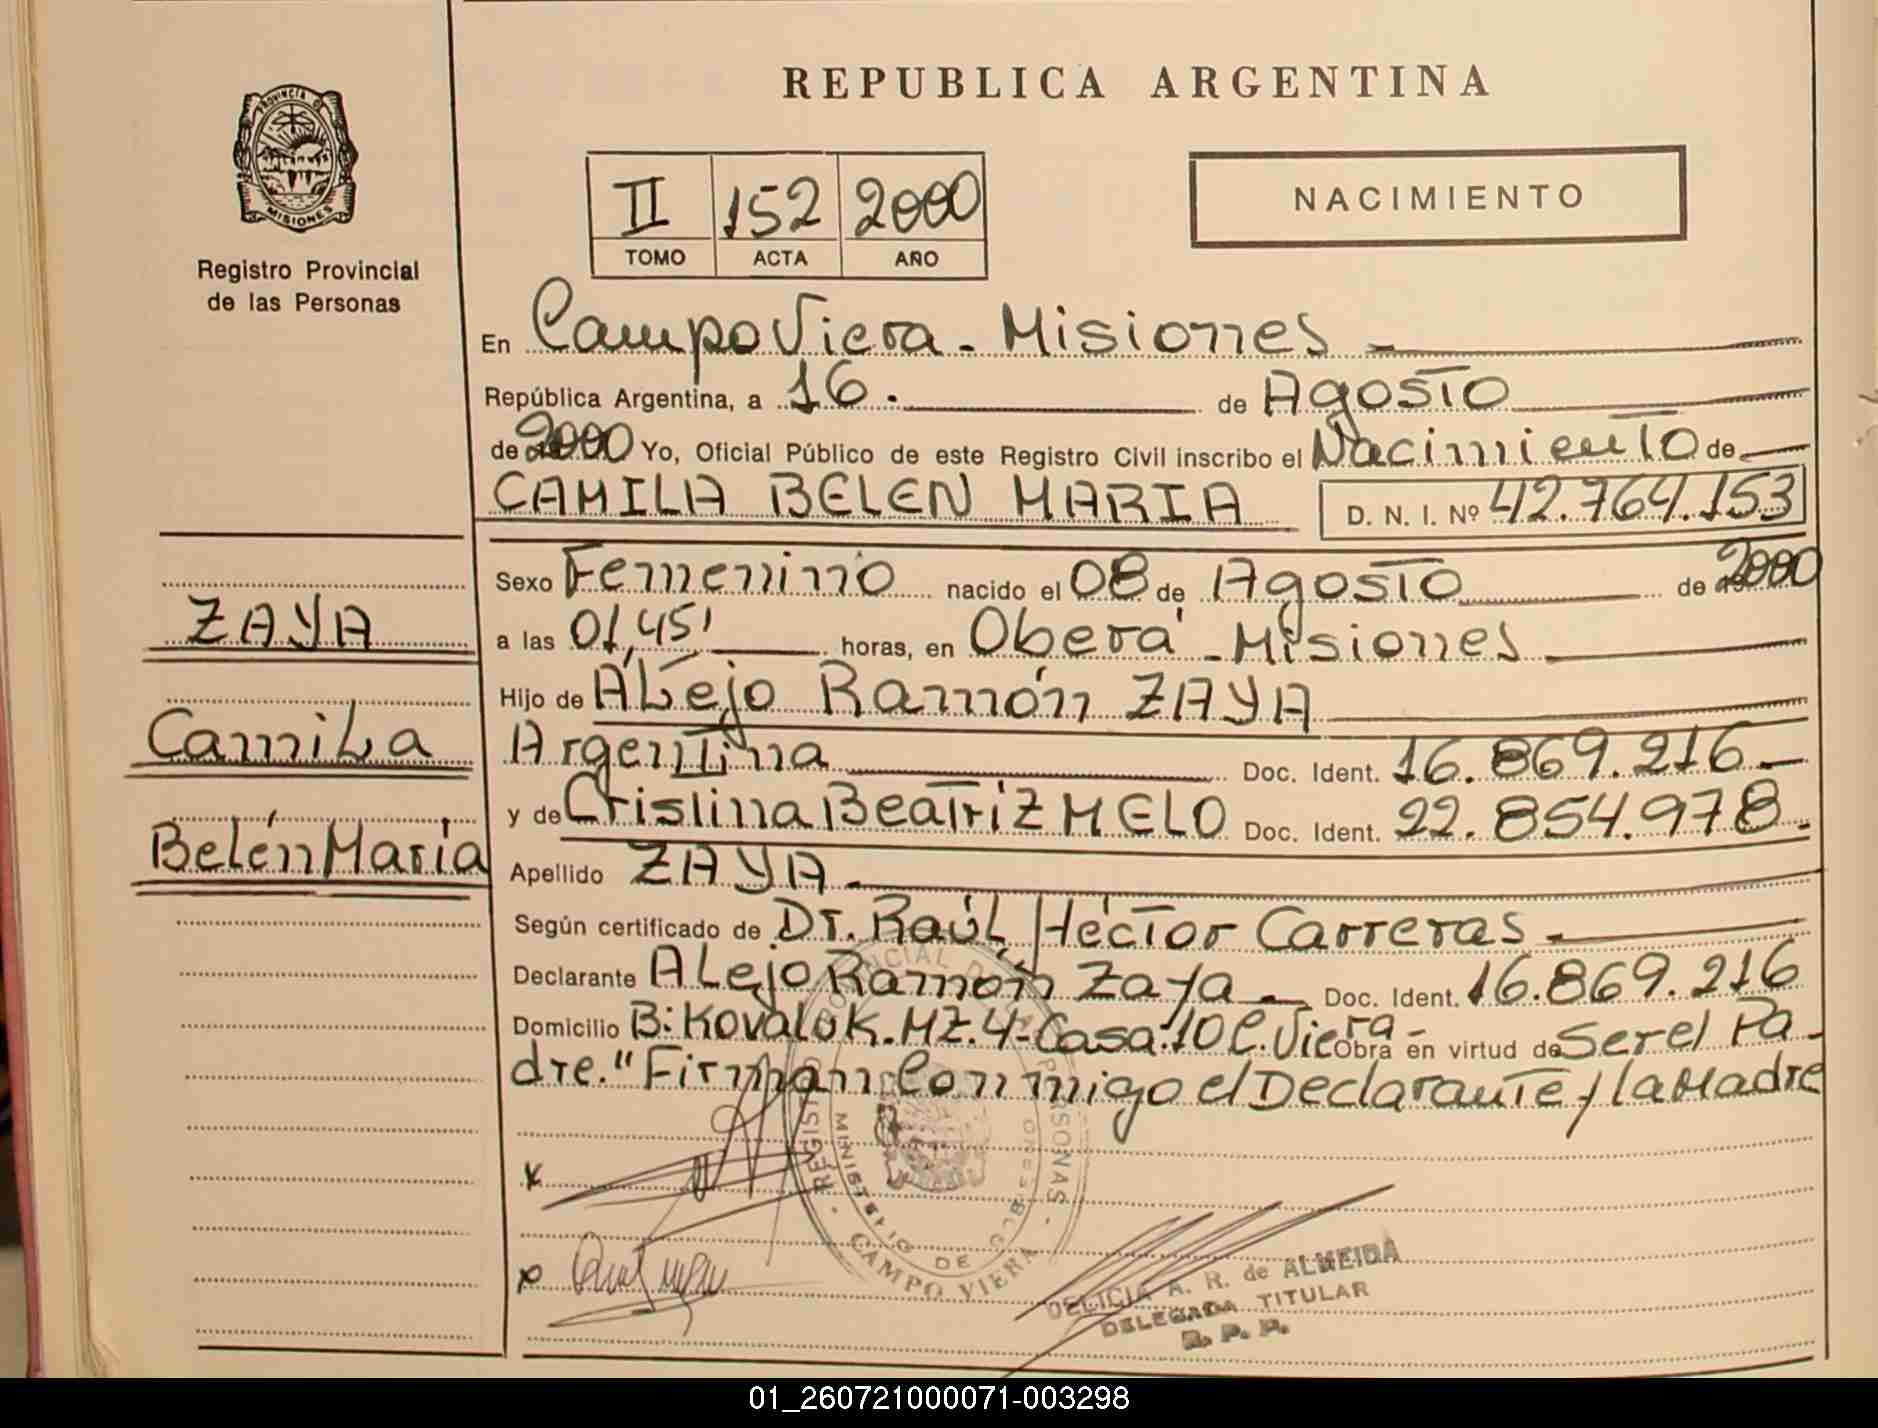 PROVINCIA D
MISIONES
Registro Provincial
de las Personas
ZAYA
Camila
Belén Maria
REPUBLICA ARGENTINA
II 152 2000
TOMO ACTA AÑO
NACIMIENTO
En Campo Viera - Misiones -
República Argentina, a 16. de Agosto
de 2000 Yo, Oficial Público de este Registro Civil inscribo el Nacimiento de
CAMILA BELEN MARIA D. N. I. Nº 42.764.153
Sexo Femenino nacido el 08 de Agosto de 2000
a las 01,45' horas, en Oberá - Misiones
Hijo de Alejo Ramón ZAYA
Argentina Doc. Ident. 16.869.216 -
y de Cristina Beatriz MELO Doc. Ident. 22.854.978.
Apellido ZAYA -
Según certificado de Dr. Raúl Héctor Carreras -
Declarante Alejo Ramón Zaya - Doc. Ident. 16.869.216
Domicilio B: Kovaluk. MZ. 4 - Casa: 10 C. Viera - Obra en virtud de Ser el Pa-
dre." Firman Conmigo el Declarante y la Madre
REGISTRO PROVINCIAL DE LAS PERSONAS
MINISTERIO DE GOB
CAMPO VIERA
x
x
DELICIA A. R. de ALMEIDA
DELEGADA TITULAR
R. P. P.
01_260721000071-003298